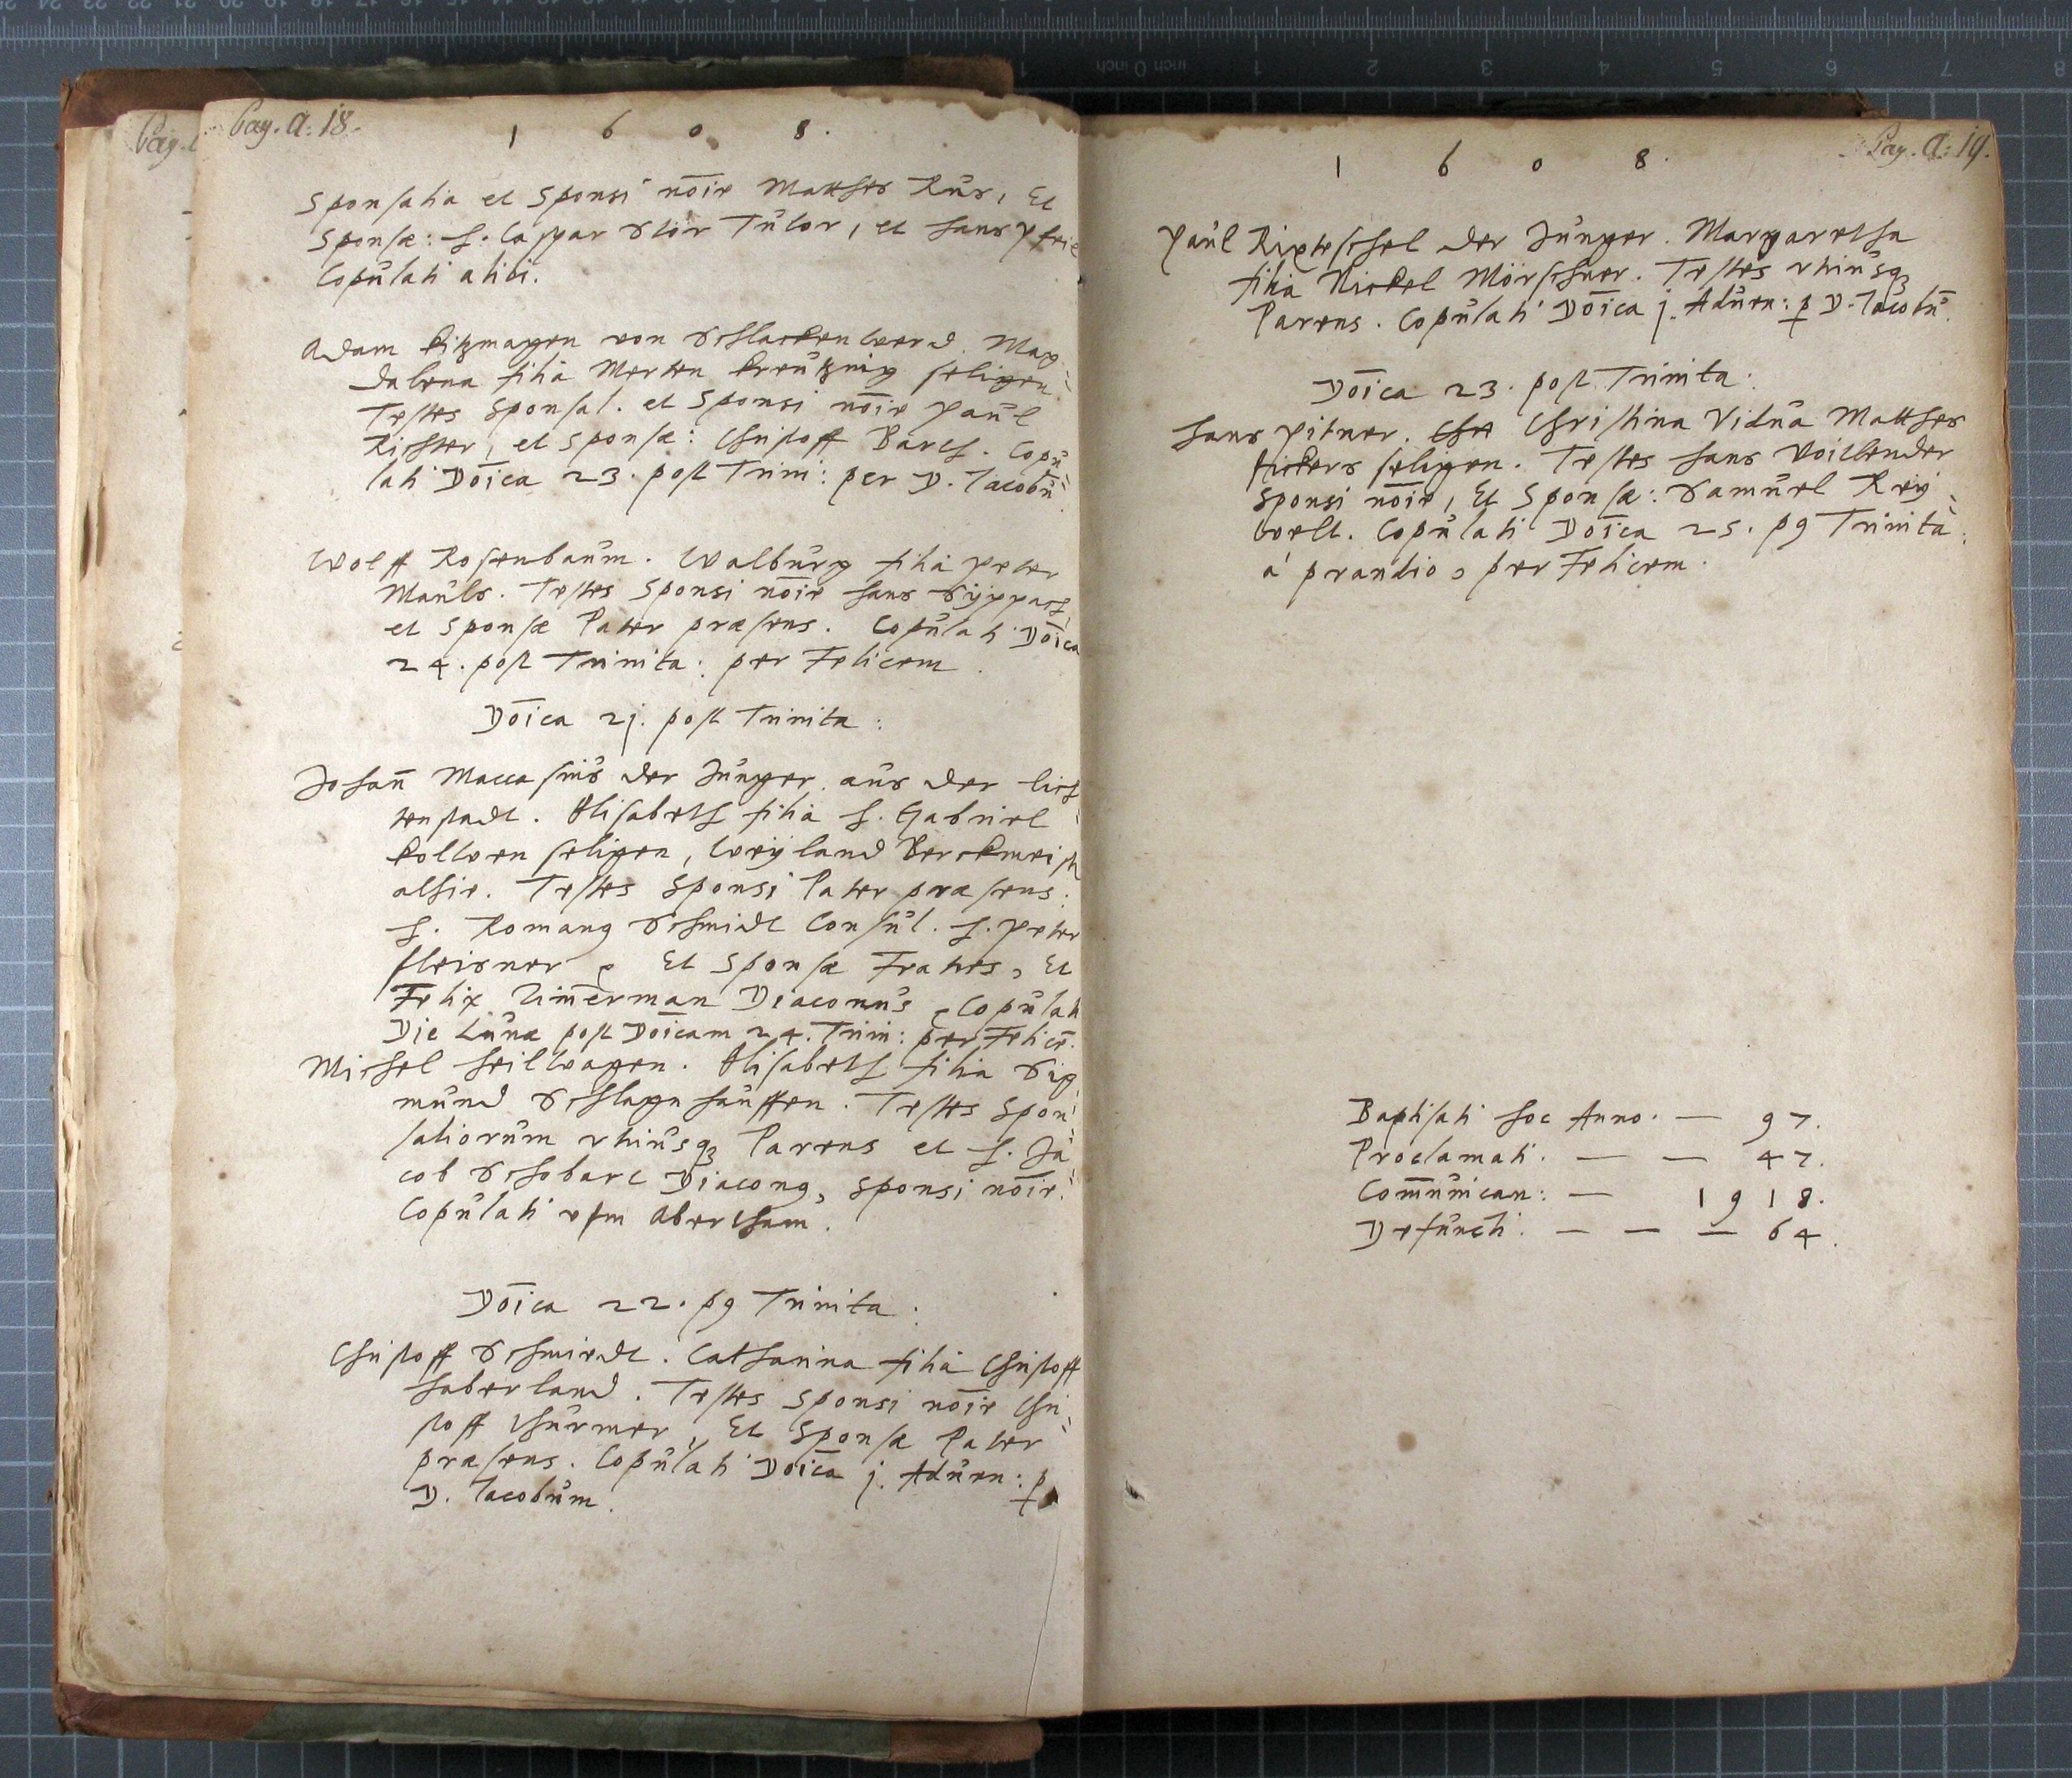 Pag. a: 18.
1 6 0 8.
Sponsalia et Sponsi nōie Matthes Kürs, Et
Sponsæ: H. Caspar Stör Tutor, et Hans
Copulati alibi.
Adam Kitzmagen von Schlackenwerd. Mag-
dalena filia Merten Kreutznig seligen
Testes Sponsal. et Sponsi nōie Paul
Richter, et Sponsæ: Christoff Barth. Copu-
lati Dōica 23. post Trini: per D. Jacobū.
Wolff Rosenbaum. Walburg filia Peter
Mauls. Testes Sponsi nōie Hans
et Sponsæ Pater præsens. Copulati Dōica
24. post Trinita: per Felicem.
Dōica 2j. post Trinita:
Johan̄ Maccasius der Junger, aus der Lich-
tenstadt. Elisabeth filia H. Gabriel
Kolben seligen, weyland Berckmeist
alhie. Testes Sponsi Pater præsens:
H. Romang Schmidt Consul. H. Peter
Et Sponsæ Fratres, Et
Felix Zim̄erman Diaconus, Copulati
Die Lunæ post Dōicam 24. Trin: per Felicē.
Michel Heilwagen. Elisabeth filia Sig-
mund Schlagnhauffen. Testes Spon-
saliorum utriusq3 Parens et H. Ja-
cob Schobart Diacong, Sponsi nōie.
Copulati ufm Abertham.
Dōica 22. p9 Trinita.
Christoff Schmiedt. Catharina filia Christoff
Haberland. Testes Sponsi nōie Chri-
stoff Thürmer, Et Sponsæ Pater
præsens. Copulati Dōica j. Aduen: p
D. Jacobum.
Pag. a: 19.
1 6 0 8.
Paul der Junger. Margaretha
filia Nickel Mörschner. Testes utriusq3
Parens. Copulati Dōica j. Aduen: p D. Jacobū.
Dōica 23. post Trinita:
Hans Pitner. Christina Vidua Matthes
Fickers seligen. Testes Hans Voitlender
Sponsi nōie, Et Sponsæ: Samuel Rey-
welt. Copulati Dōica 25. p9 Trinita:
à prandio, per Felicem.
Baptisati hoc Anno. — 97.
Proclamati. — — 47.
Com̄unican: — 1918.
Defuncti. — — — 64.